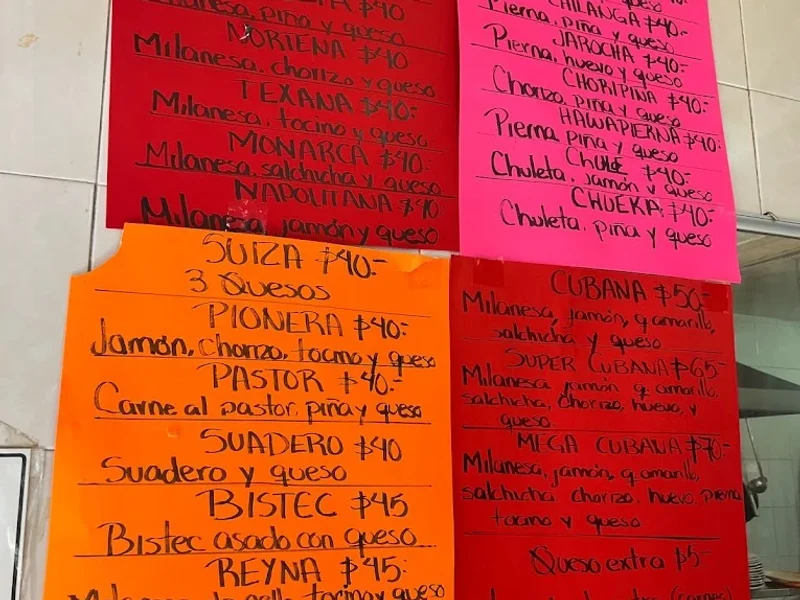 $40
Milanesa, piña y queso
NORTEÑA $40
Milanesa, chorizo y queso
TEXANA $40.-
Milanesa, tocino y queso
MONARCA $40.-
Milanesa, salchicha y queso
NAPOLITANA $40
Milanesa, jamón y queso
CHILANGA $40.-
Pierna, piña y queso
JAROCHA $40.-
Pierna, huevo y queso
CHORIPIÑA $40.-
Chorizo, piña y queso
HAWAPIERNA $40.-
Pierna piña y queso
CHULE $40.-
Chuleta, jamón y queso
CHUEKA $40.-
Chuleta, piña y queso
SUIZA $40.-
3 Quesos
PIONERA $40.-
Jamón, Chorizo, tocino y queso
PASTOR $40.-
Carne al pastor, piña y queso
SUADERO $40
Suadero y queso
BISTEC $45
Bistec asado con queso
REYNA $45.-
tocino y queso
CUBANA $50.-
Milanesa, jamón, q. amarillo,
salchicha y queso
SUPER CUBANA $65.-
Milanesa jamón q. amarillo,
salchicha, chorizo, huevo, y
queso
MEGA CUBANA $70.-
Milanesa, jamón, q. amarillo,
salchicha chorizo, huevo, pierna
tocino y queso
Queso extra $5-
(carnes)